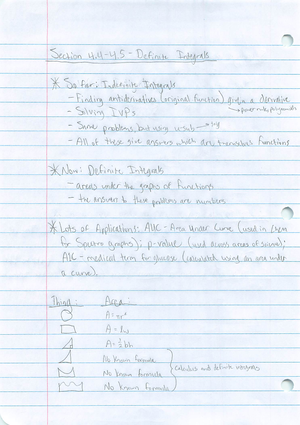 Section 4.4-4.5 - Definite Integrals
* So far: Indefinite Integrals
- Finding antiderivatives (original function) given a derivative
power rule, polynomials
- Solving IVPs
- Same problems, but using u-sub
- All of these give answers which are functions
* Now: Definite Integrals
- areas under the graphs of functions
- the answer to these problems are numbers
* Lots of Applications: AUC - Area Under Curve (used in chem
for spectrographs); p-value (used across areas of science);
A1C - medical term for glucose (calculated using an area under
a curve).
Thing: Area:
A = πr²
A = lw
A = ½bh
No known formula
No known formula } calculus and definite integrals
No known formula